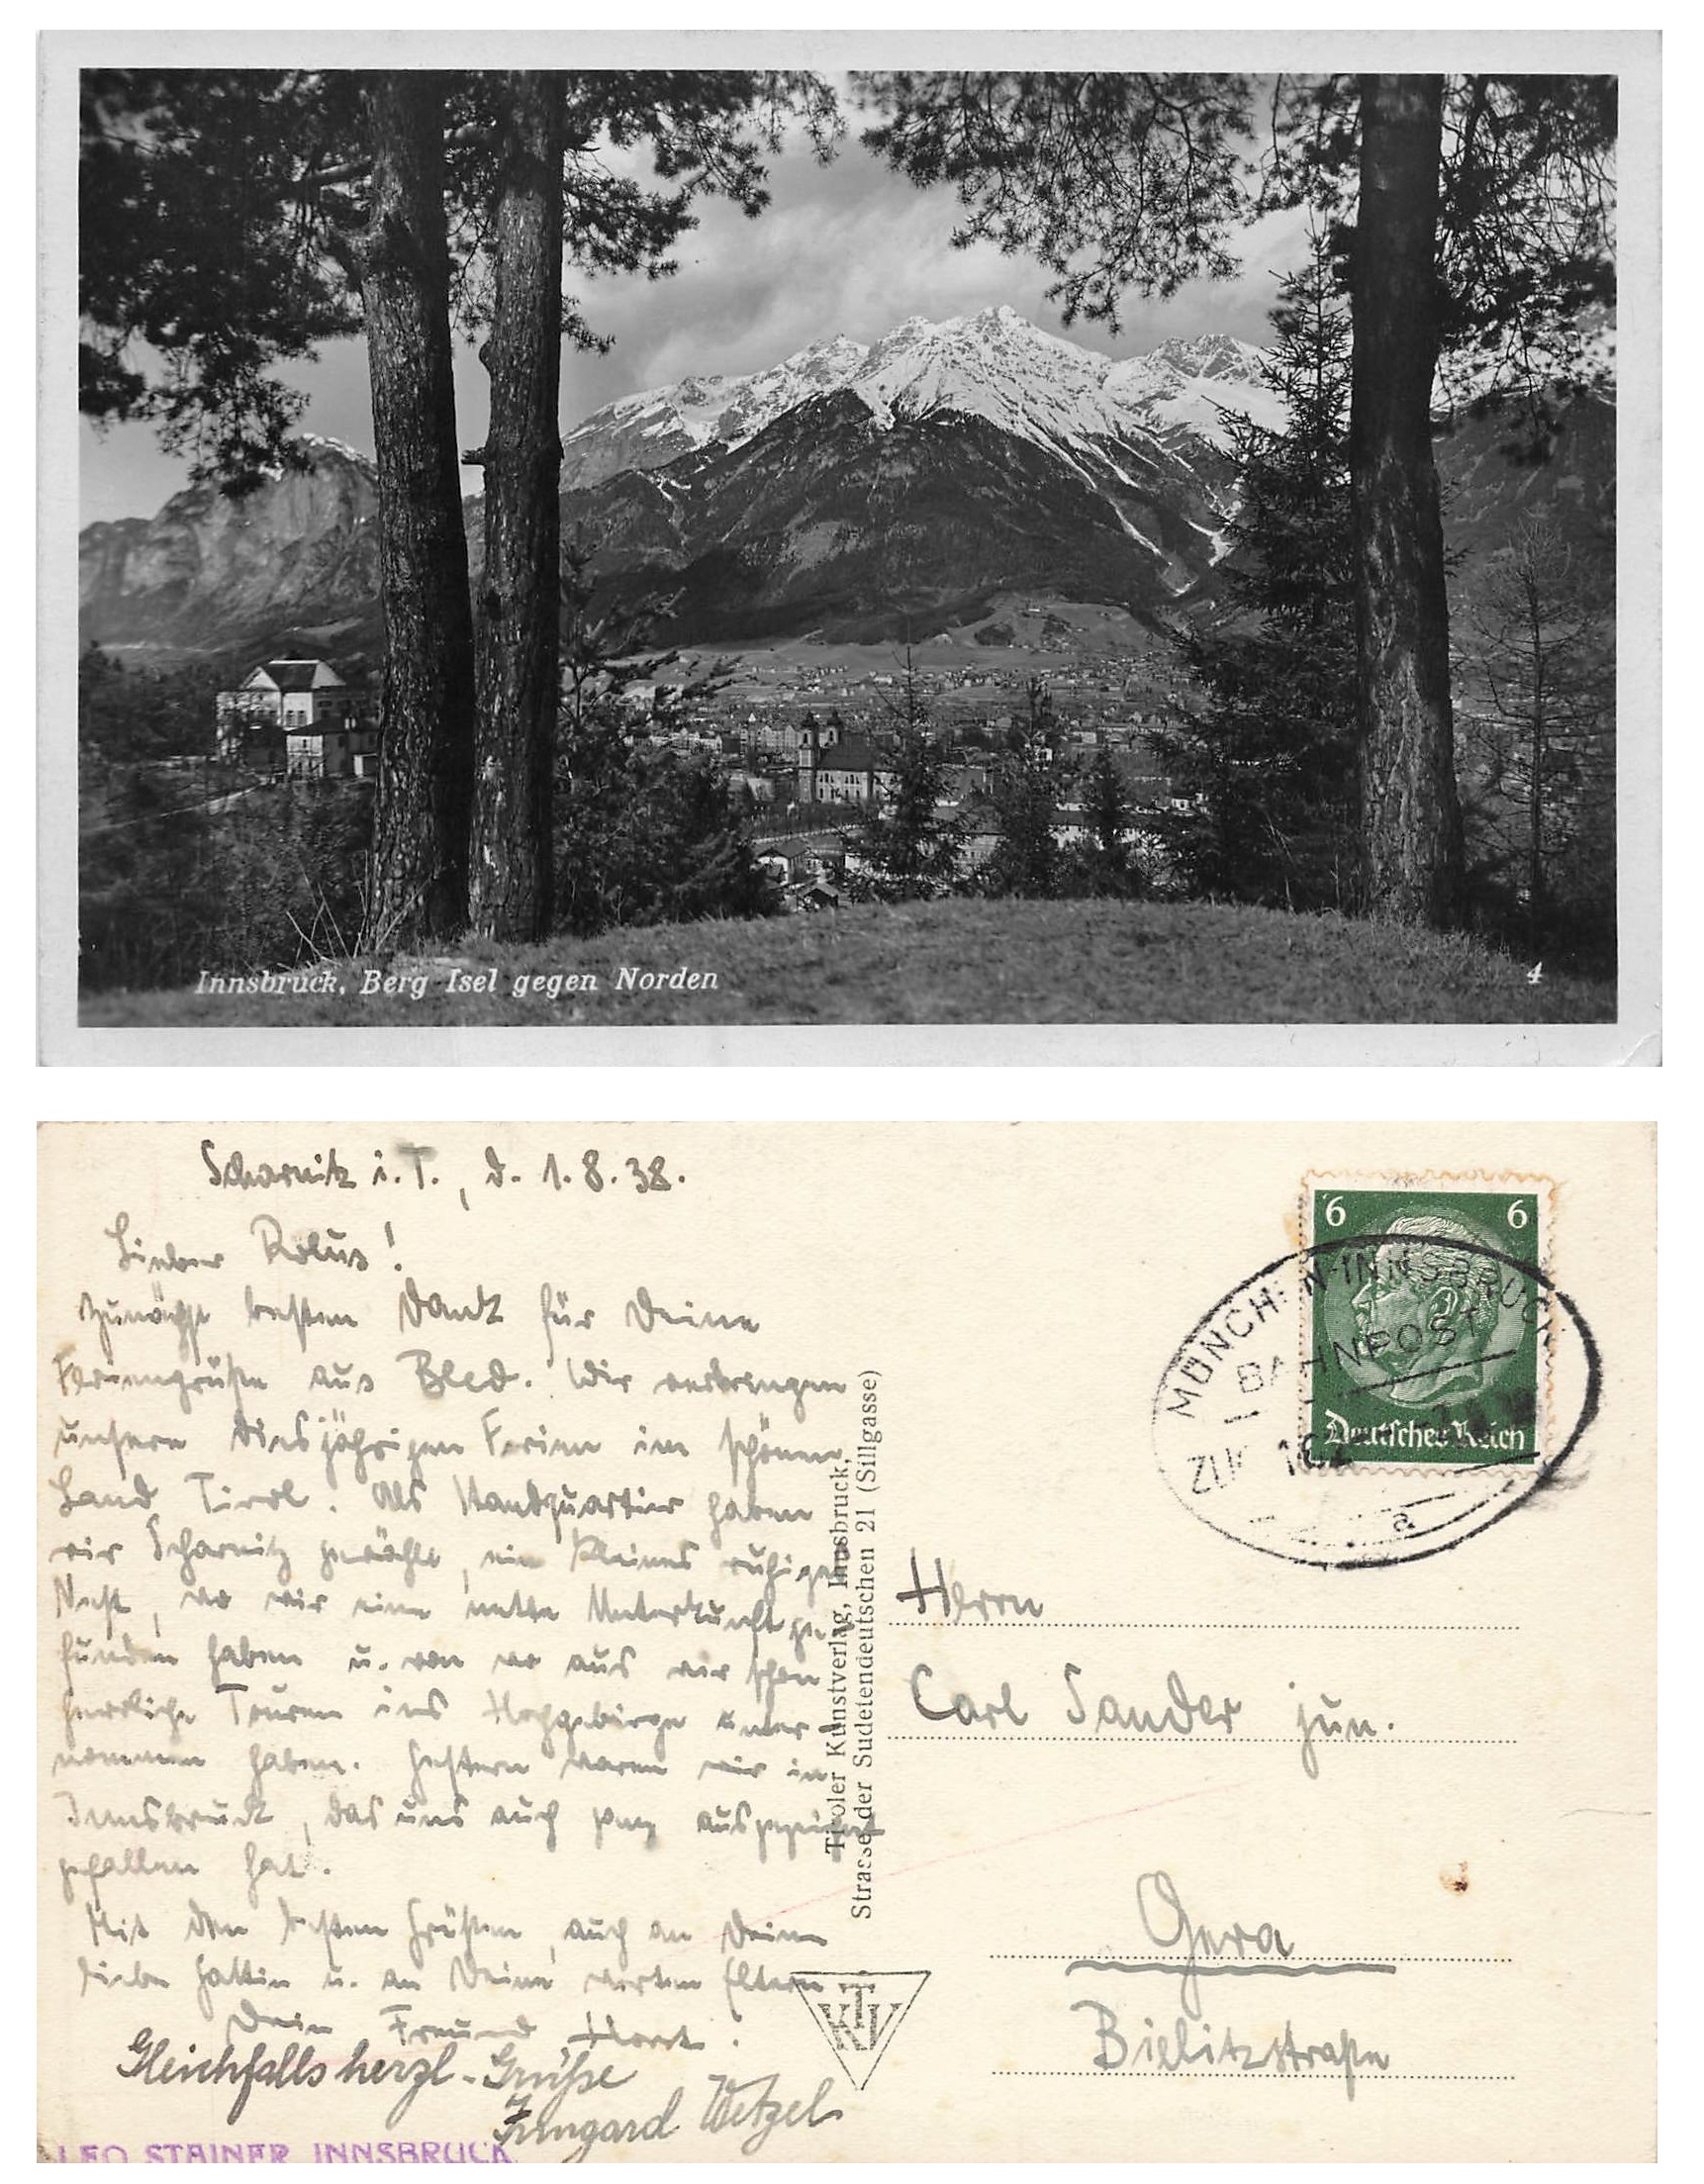 Innsbruck, Berg Isel gegen Norden
4
Scharnitz i. T., d. 1. 8. 38.
Lieber Rolus!
Zunächst besten Dank für Deine
Feriengrüße aus Bled. Wir verbringen
unsere diesjährigen Ferien im schönen
Land Tirol. Als Standquartier haben
wir Scharnitz gewählt, ein kleines ruhiges
Nest, wo wir eine nette Unterkunft ge-
funden haben u. von wo aus wir schon
herrliche Touren ins Hochgebirge unter-
nommen haben. Gestern waren wir in
Innsbruck, das uns auch ganz ausgezeichnet
gefallen hat.
Mit den besten Grüßen, auch an Deine
liebe Gattin u. an Deine werten Eltern
Dein Freund Horst.
Gleichfalls herzl. Grüße
Irmgard Wetzel
LEO STAINER INNSBRUCK
Tiroler Kunstverlag, Innsbruck,
Strasse der Sudetendeutschen 21 (Sillgasse)
TKV
6 6
Deutsches Reich
MÜNCHEN-INNSBRUCK
BAHNPOST
ZUG
a
Herrn
Carl Sander jun.
Gera
Bielitzstraße